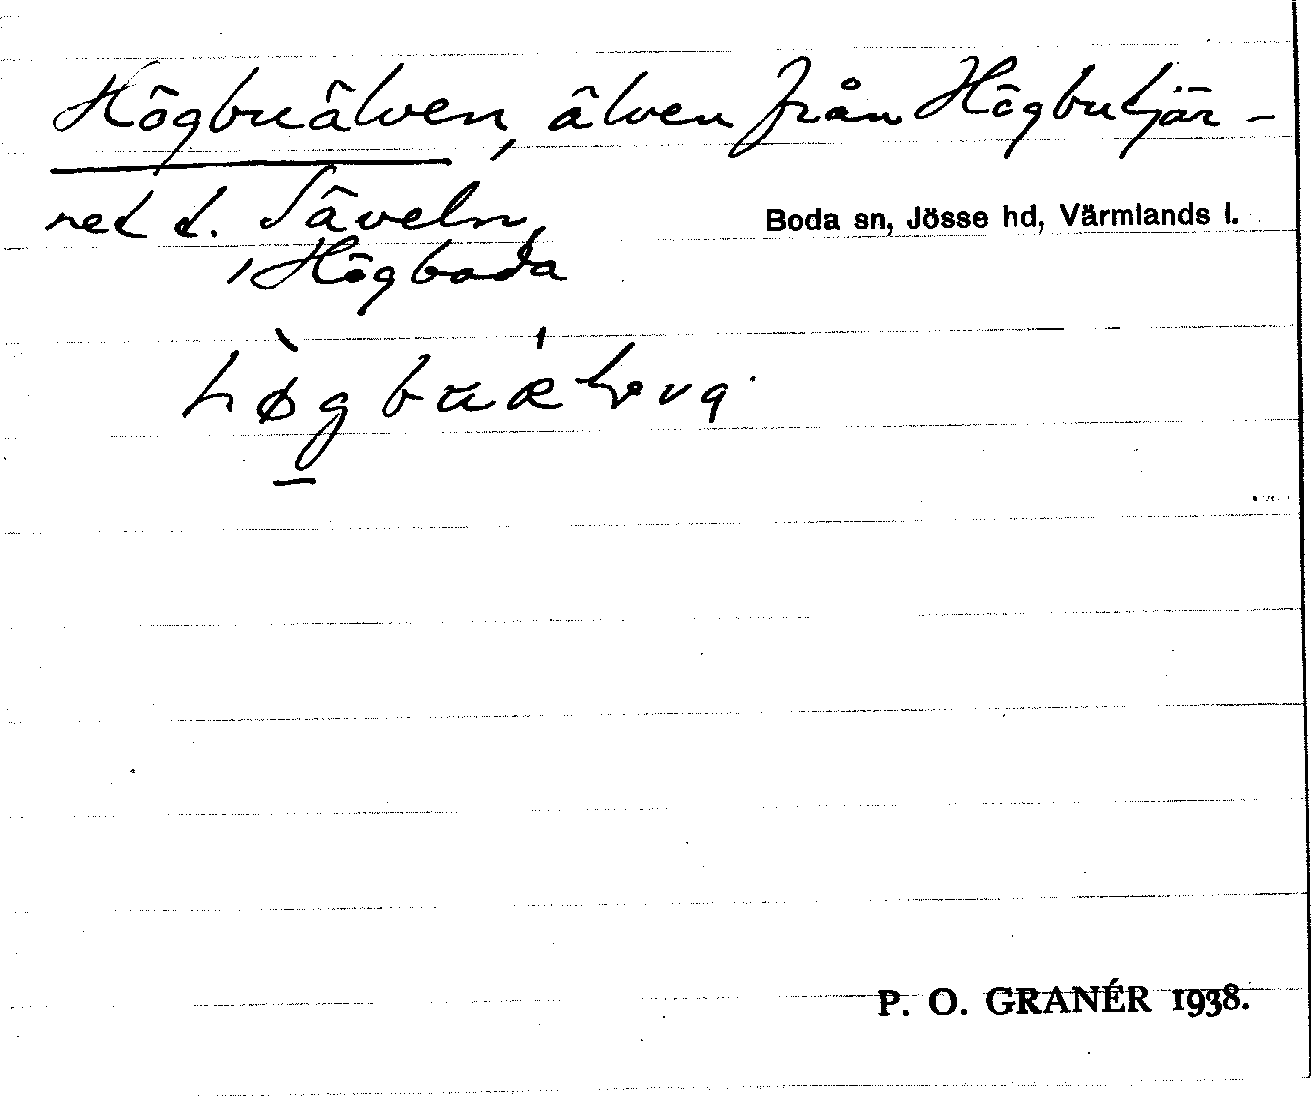 Högbuälven, älven från Högbutjär-
net t. Säveln,
i Högboda
Boda sn, Jösse hd, Värmlands l.
P. O. GRANÉR 1938.